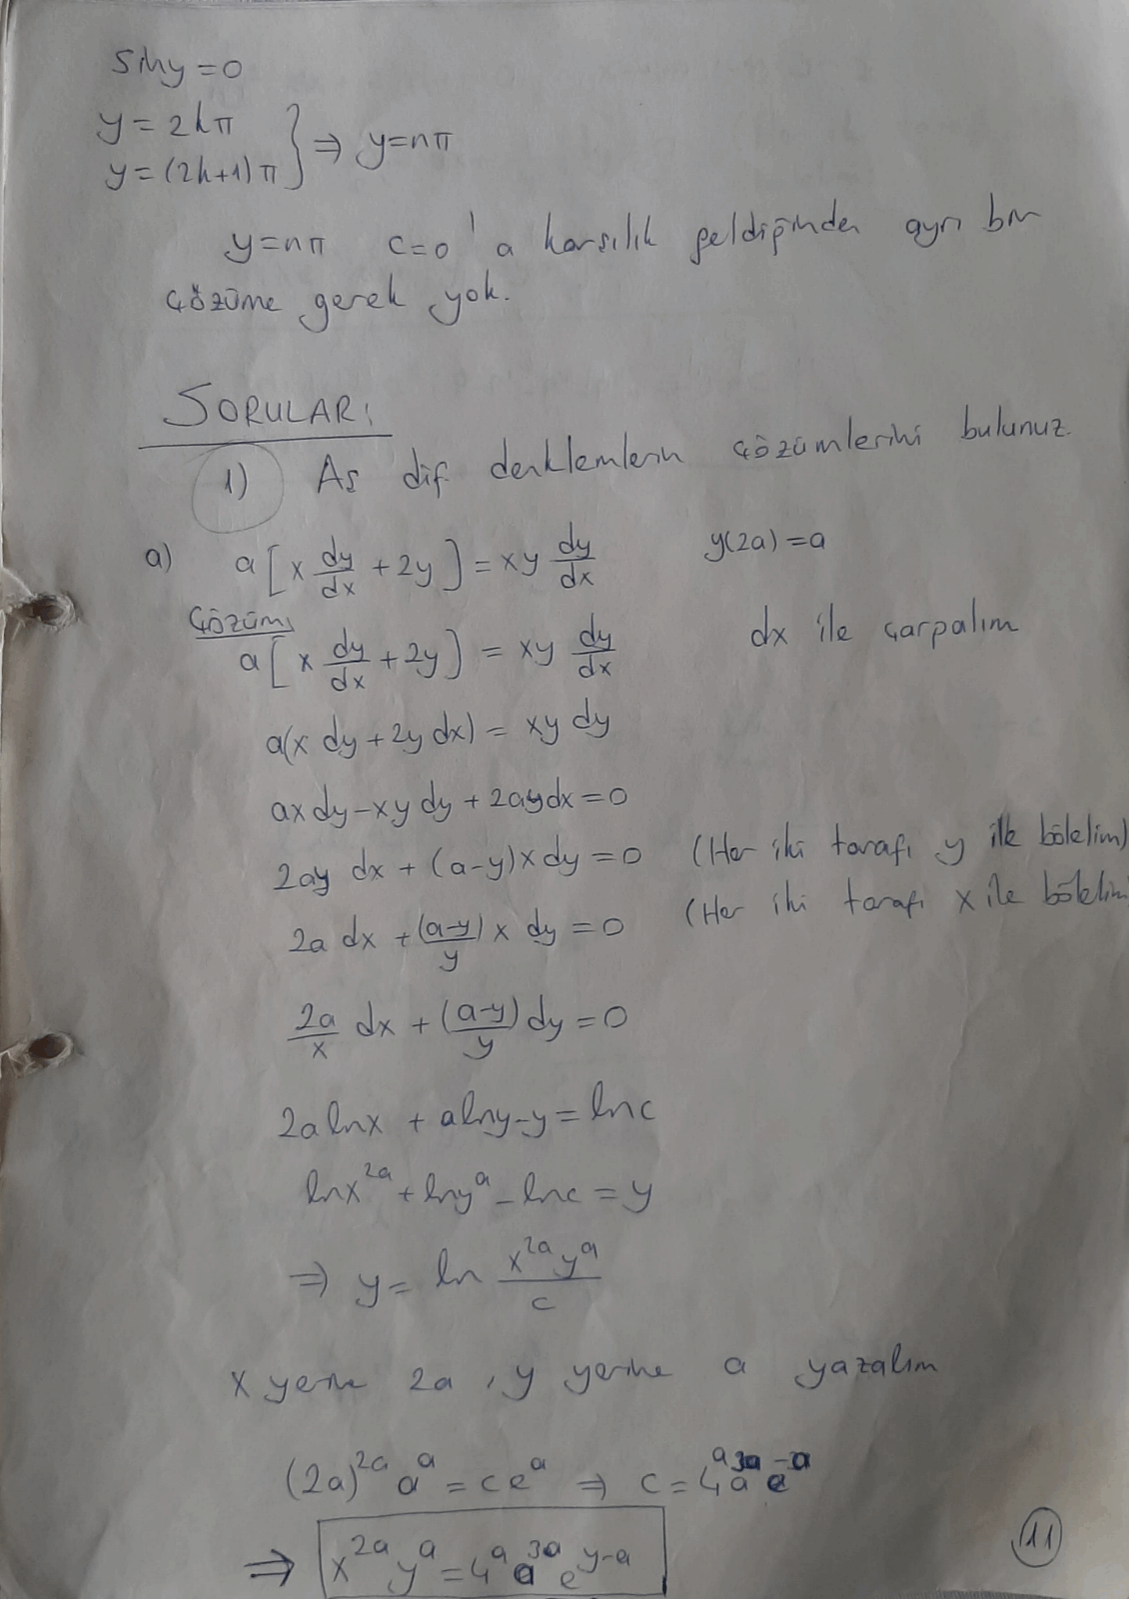 Siny = 0
y = 2kπ
y = (2k+1)π } ⇒ y = nπ
y = nπ c = 0' a karşılık geldiğinden ayrı bir
çözüme gerek yok.
SORULAR:
1) Aş dif. denklemlerin çözümlerini bulunuz.
a) a[x dy/dx + 2y] = xy dy/dx y(2a) = a
Çözüm:
a[x dy/dx + 2y] = xy dy/dx dx ile çarpalım
a(x dy + 2y dx) = xy dy
ax dy - xy dy + 2ay dx = 0
2ay dx + (a-y)x dy = 0 (Her iki tarafı y ile bölelim)
2a dx + (a-y)/y x dy = 0 (Her iki tarafı x ile bölelim
2a/x dx + (a-y)/y dy = 0
2a lnx + a lny - y = lnc
lnx^2a + lny^a - lnc = y
⇒ y = ln x^2a y^a / c
x yerine 2a, y yerine a yazalım
(2a)^2a a^a = c e^a ⇒ c = 4^a a^3a e^-a
⇒ x^2a y^a = 4^a a^3a e^y-a
11